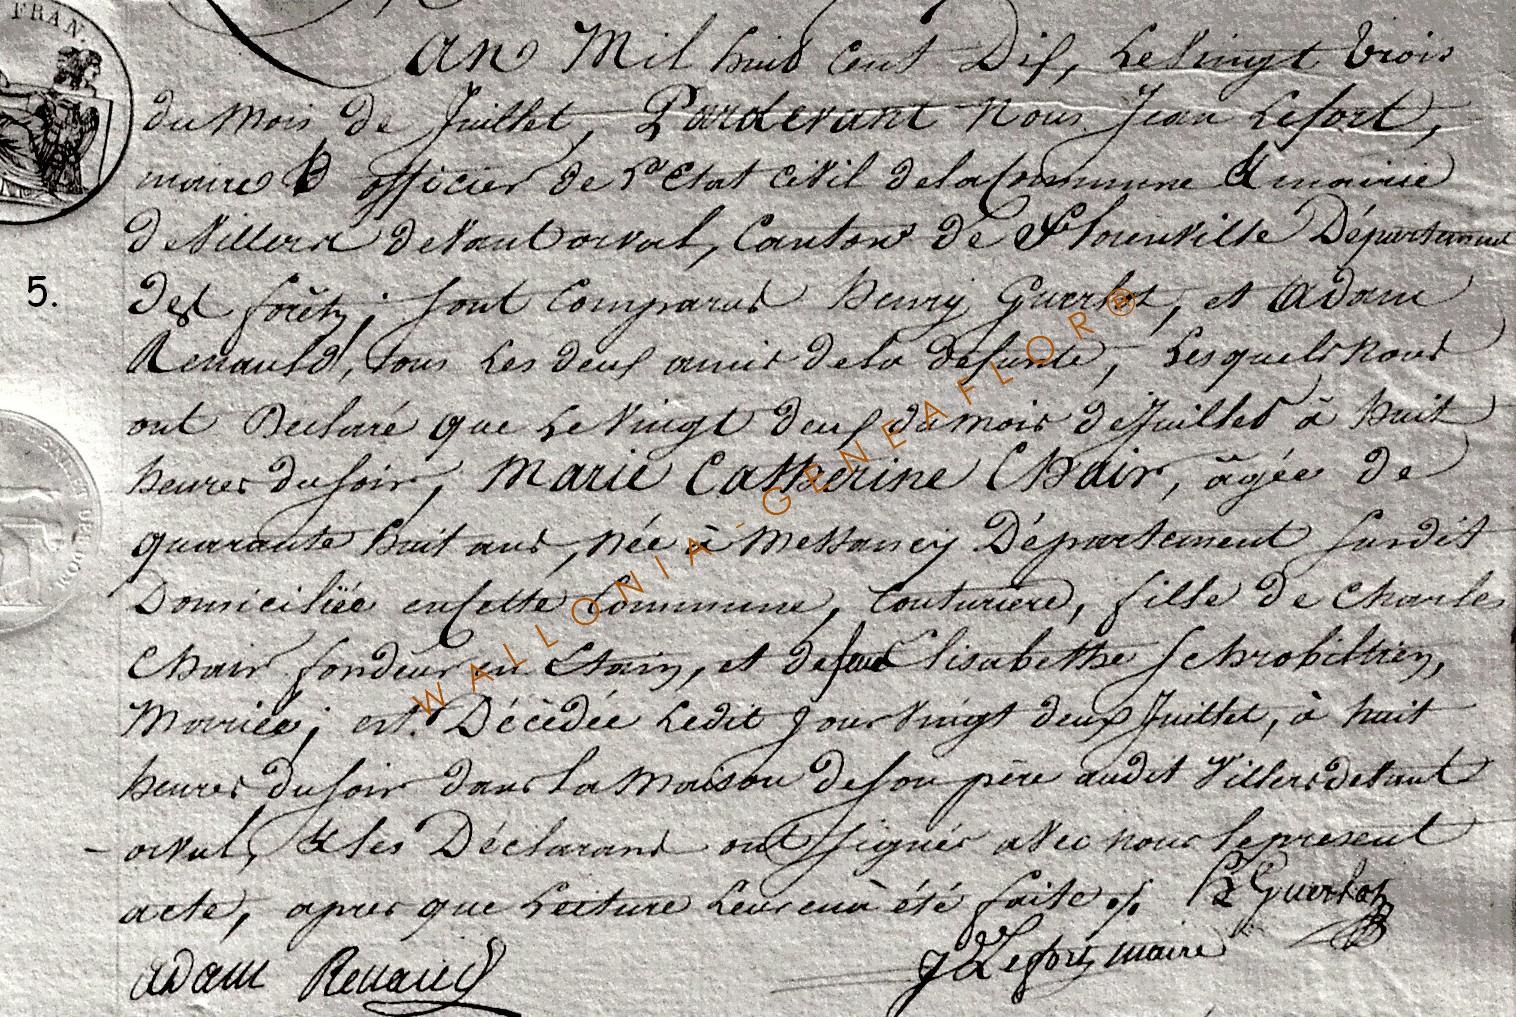 FRAN.
An Mil huit Cent Dix, Le Vingt trois
du mois de Juillet, Pardevant Nous Jean Lefort,
maire & officier de l'Etat Civil de la Commune & mairie
de Villers devant orval, Canton de Florenville Département
5. des forêts; sont Comparus henry Guerlot, et Adam
Renauld, tous Les deux amis de la defunte, Lesquels Nous
ont Déclaré que Le Vingt deux du mois de Juillet à huit
heures du soir, Marie Catherine Chair, âgée de
quarante huit ans, Née à Messancy Département susdit
Domiciliée en Cette Commune, Couturiere, fille de Charles
Chair fondeur en Etain, et de feue Elisabethe Schrobiltgen,
Mariée; est Décèdée Ledit Jour Vingt deux Juillet, à huit
heures du soir dans La Maison de son père audit Villers devant
orval, & les Déclarans ont signés avec nous le present
acte, apres que Lecture Leur en à été faite ./. H Guerlot
Adam Renauld J Lefort, maire
WALLONIA-GENEAFLOR®